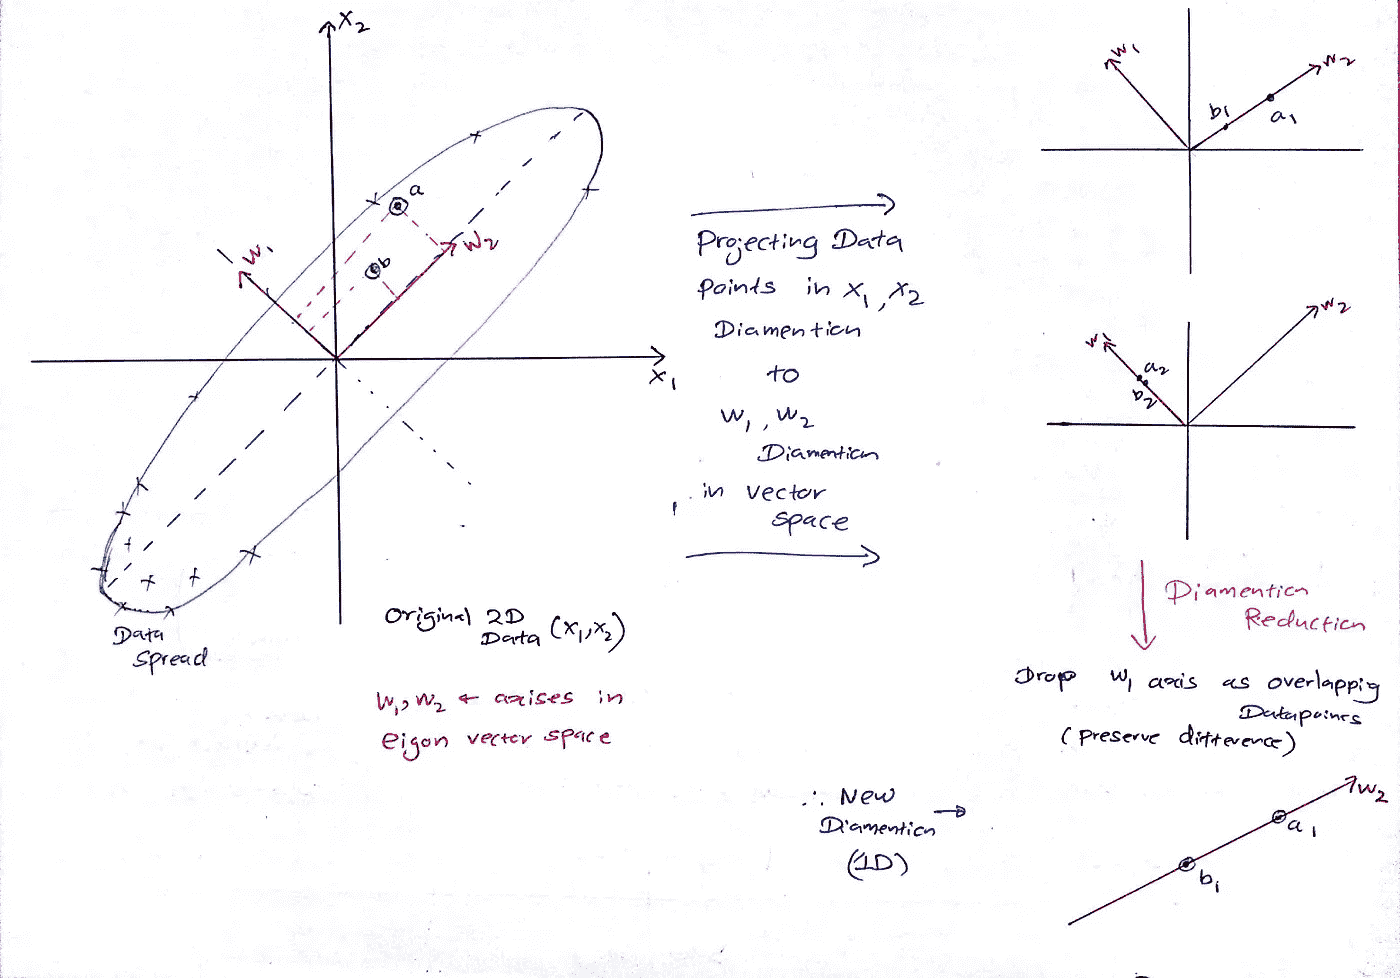 x₂
a
b
w₁
w₂
x₁
Data
Spread
Original 2D
Data (x₁,x₂)
w₁, w₂ ← axises in
eigon vector space
Projecting Data
points in x₁, x₂
Diamention
to
w₁, w₂
Diamention
in vector
space
w₁
w₂
b₁
a₁
w₂
w₁
a₂
b₂
Diamention
Reduction
Drop w₁ axis as overlappig
Datapoints
(preserve difference)
∴ New
Diamention →
(1D)
w₂
a₁
b₁